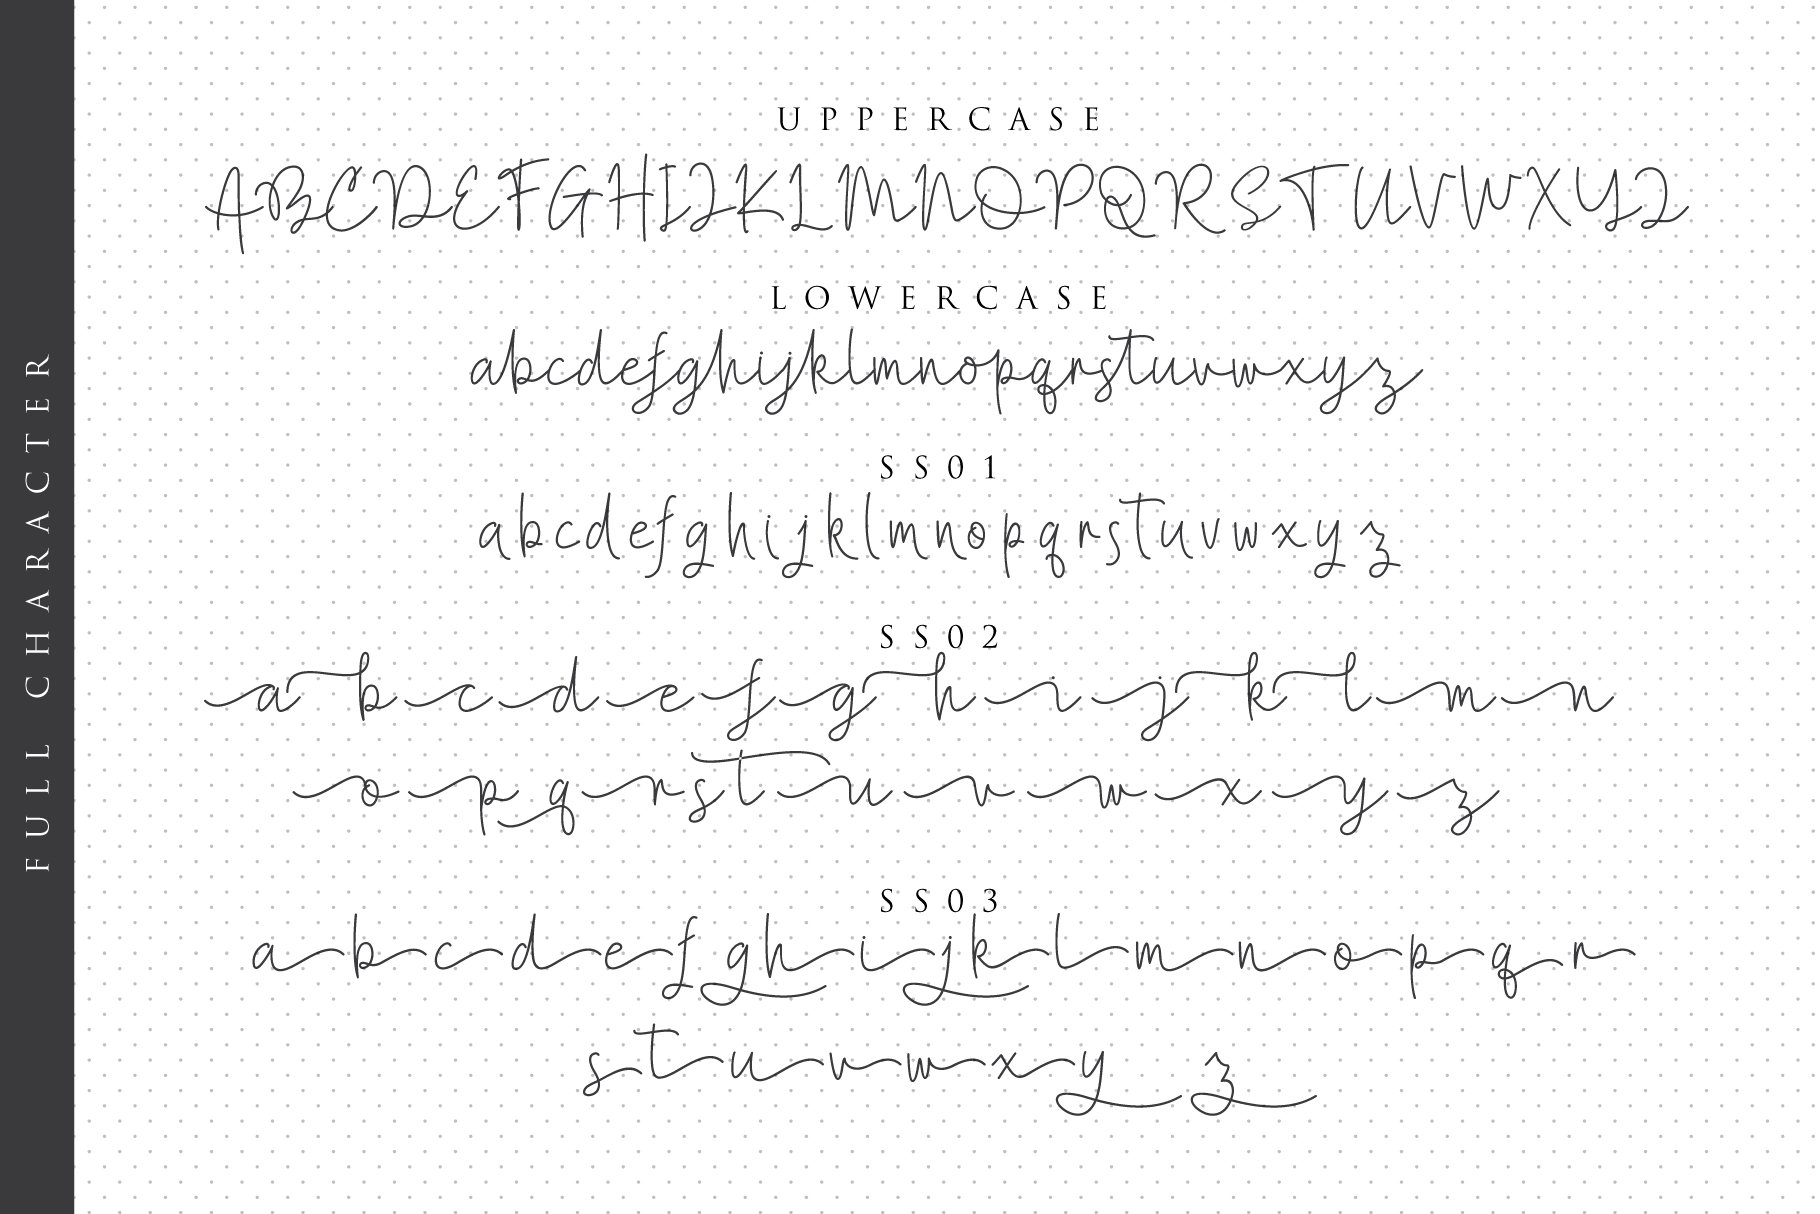 FULL CHARACTER
UPPERCASE
ABCDEFGHIJKLMNOPQRSTUVWXYZ
LOWERCASE
abcdefghijklmnopqrstuvwxyz
SS01
abcdefghijklmnopqrstuvwxyz
SS02
abcdefghijklmn
opqrstuvwxyz
SS03
abcdefghijklmnopqr
stuvwxyz